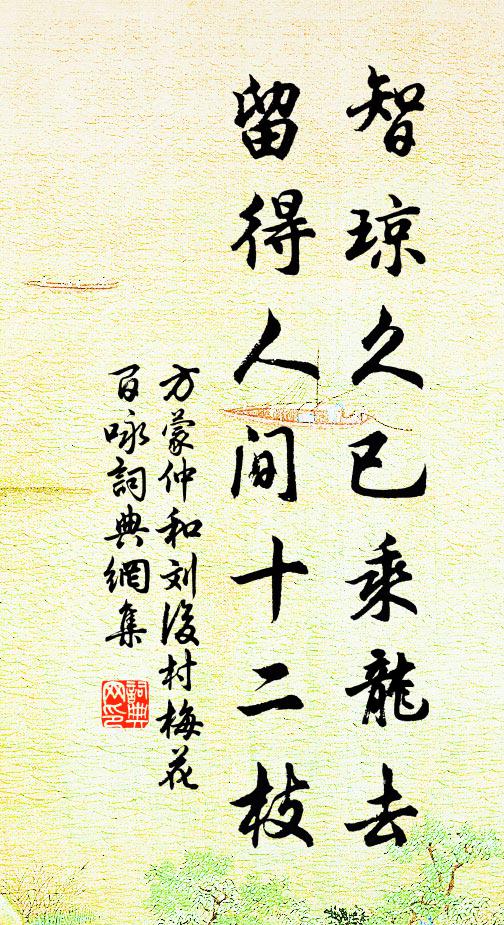 智琼久已乘龍去
留得人间十二枝
方蒙仲和刘後村梅花
百咏詞典網集
詞典网印